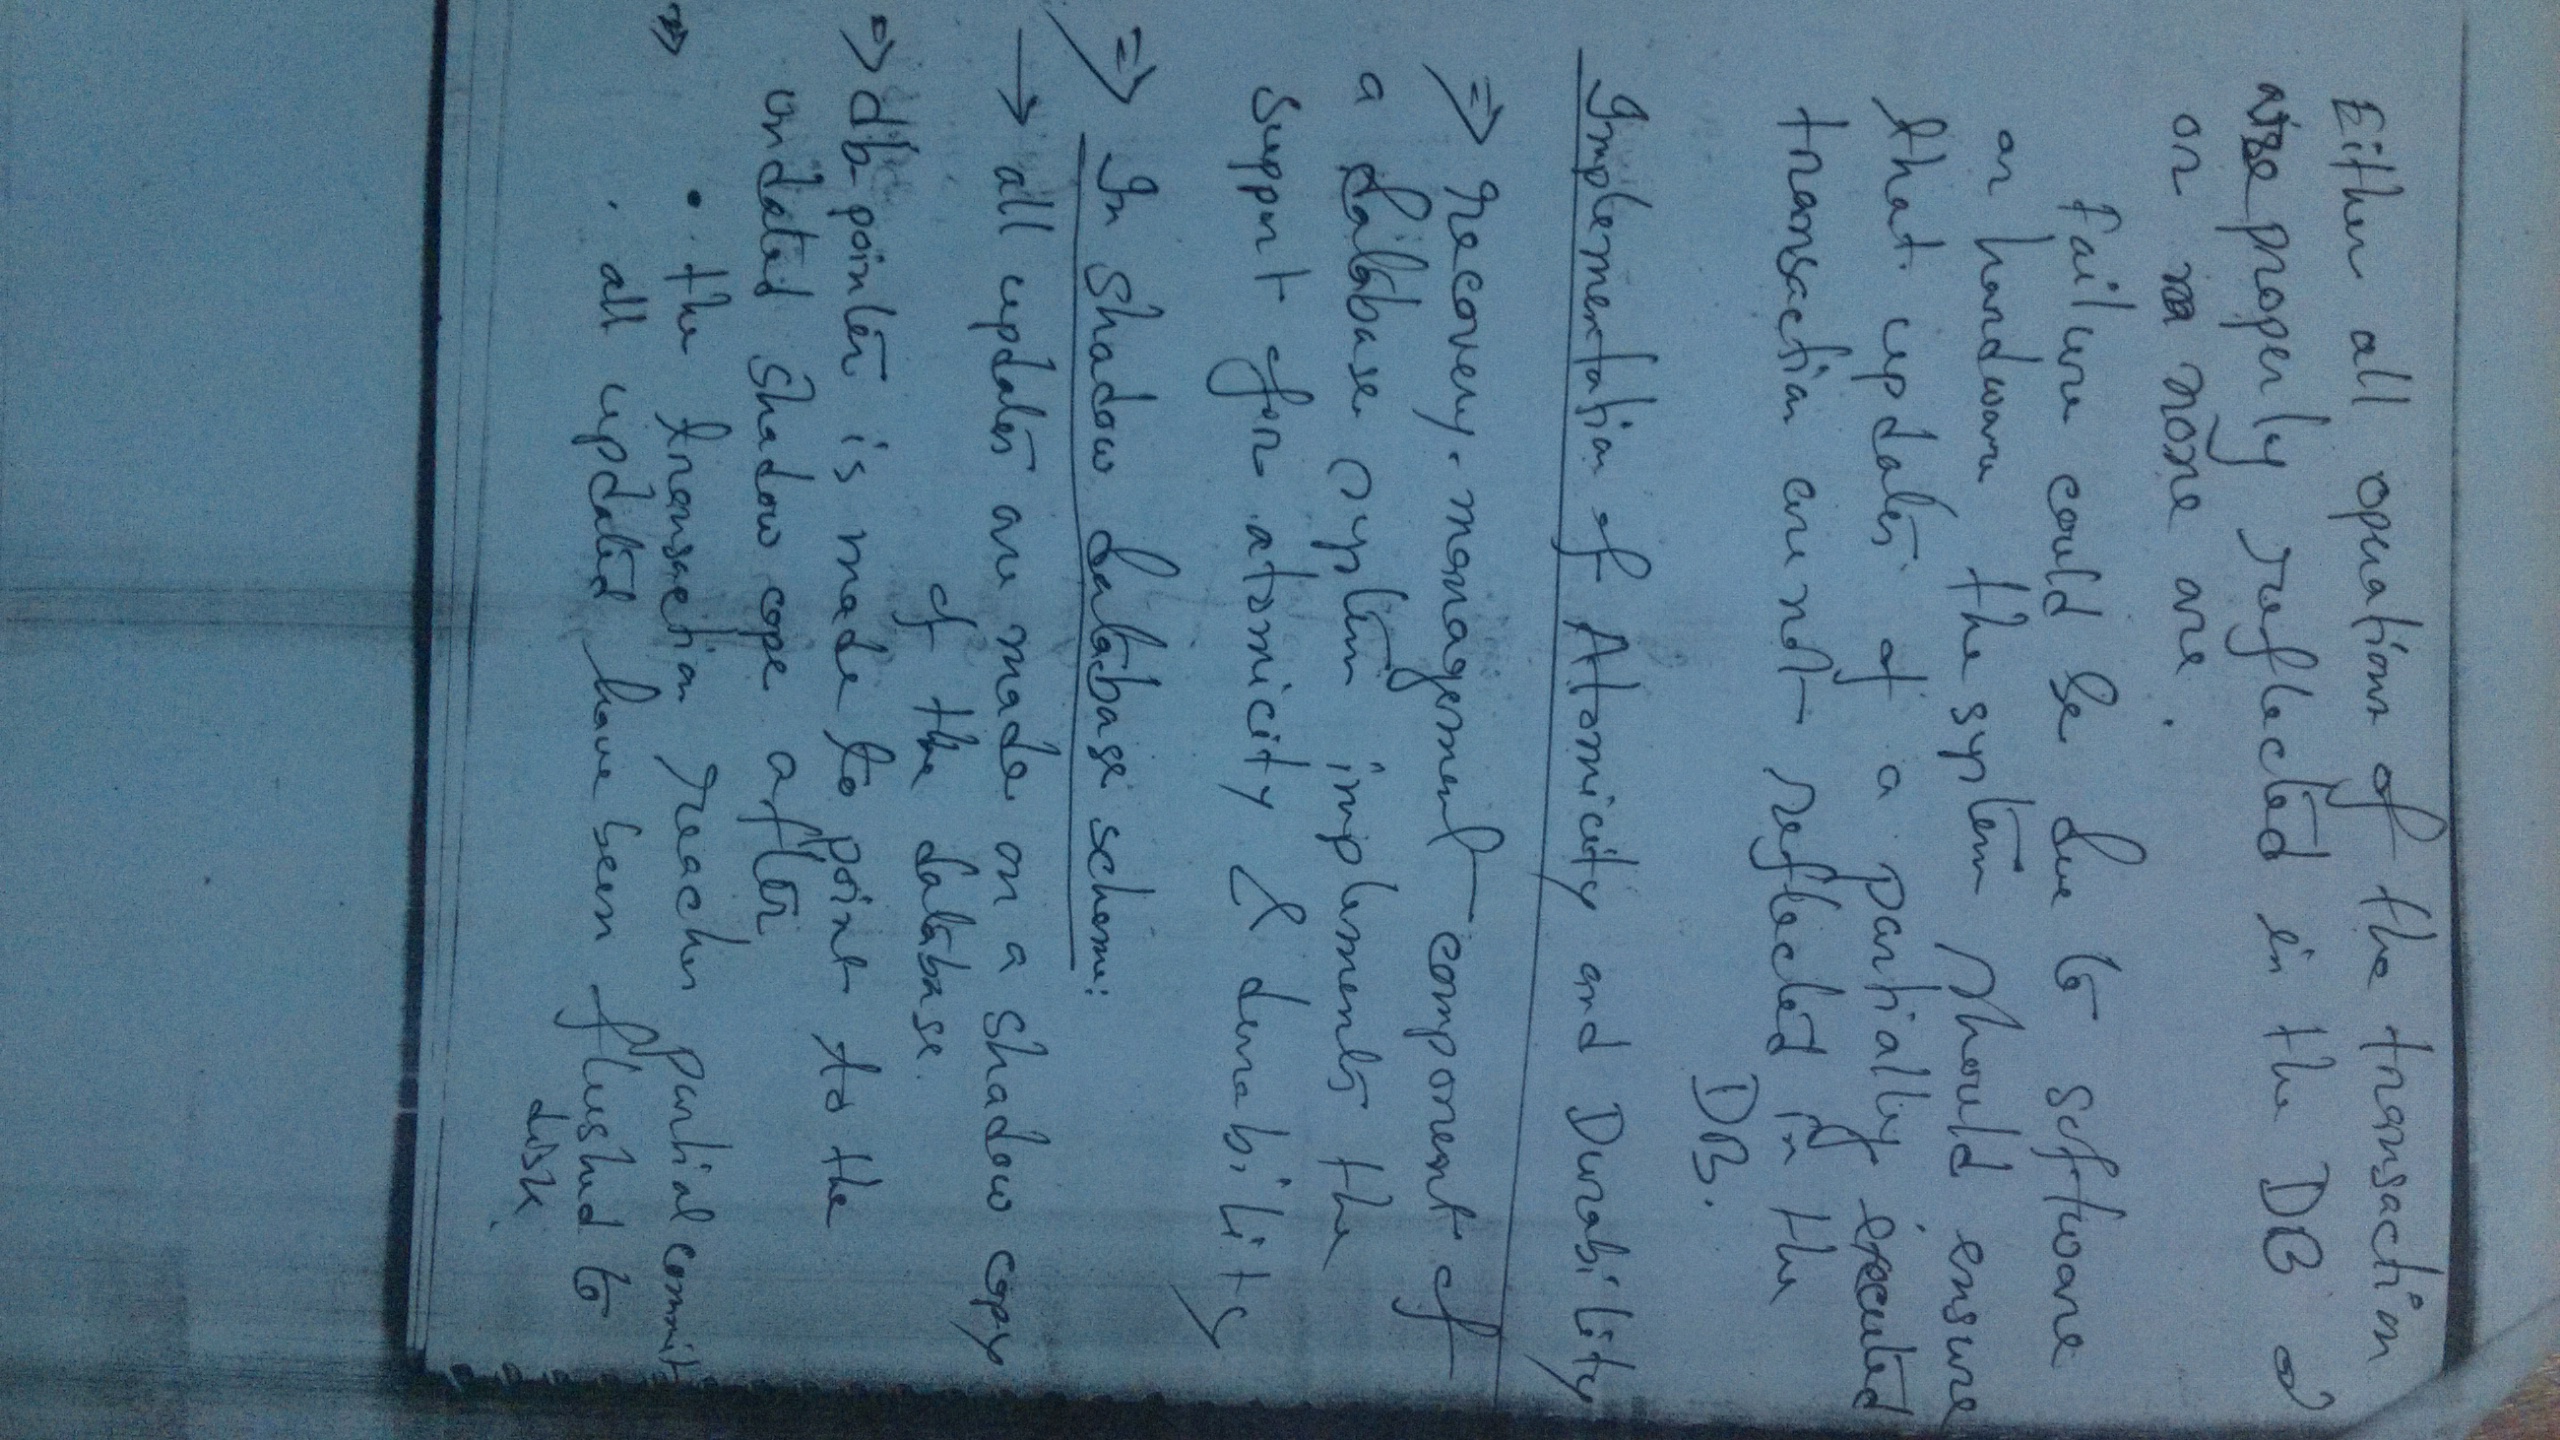 Either all operations of the transaction
are properly reflected in the DB or
or none are.
Failure could be due to software
or hardware the system should ensure
that updates of a partially executed
transaction are not reflected in the
DB.
Implementation of Atomicity and Durability
⇒ recovery-management component of
a database system implements the
support for atomicity & durability
⇒ In shadow database scheme:
→ all updates are made on a shadow copy
of the database.
⇒ db-pointer is made to point to the
updated shadow cope after
⇒ • the transaction reaches partial commit
. all updated have been flushed to
disk.